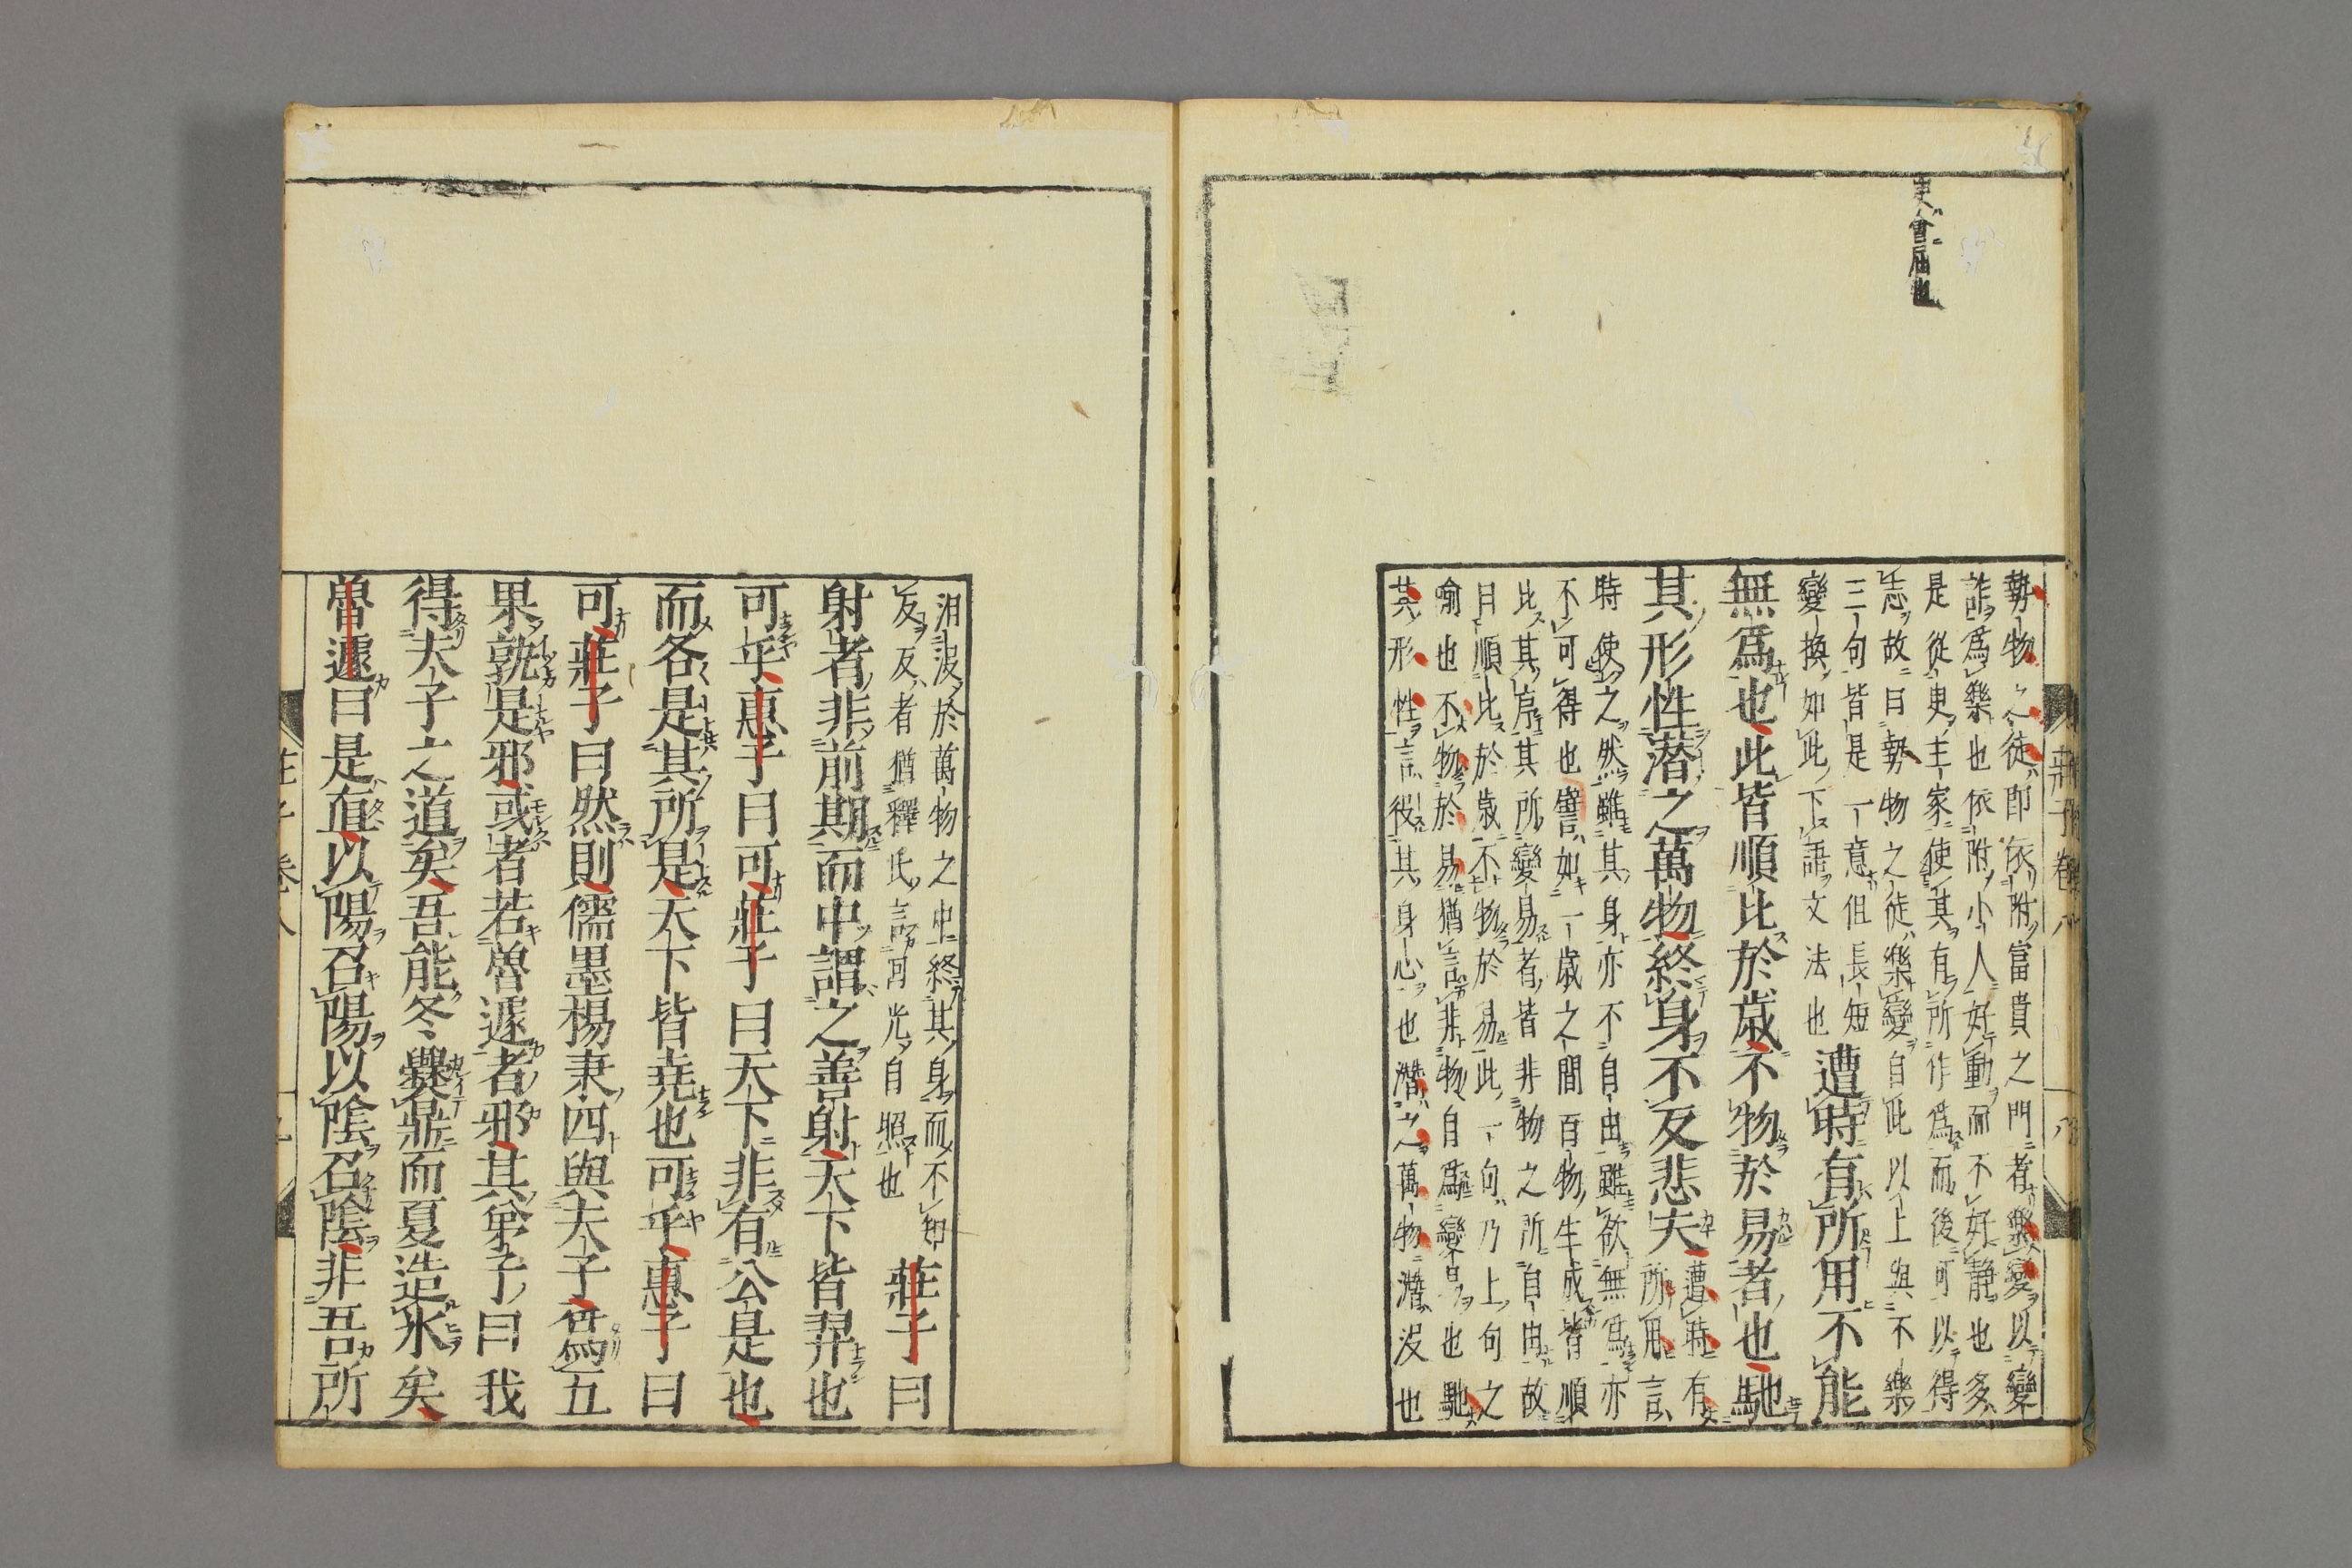 勢物之徒即依附富貴之門者樂變以變
詐爲樂也依附小人好動而不好靜也多
是從吏主家使其有所作爲而後可以得
志故曰勢物之徒樂變自此以上與不樂
三句皆是一意但長短
變換如此下語文法也遭時有所用不能
無爲也此皆順比於歳不物於易者也馳
其形性潜之萬物終身不反悲夫
遭時有
所用言
時使之然雖其身亦不自由雖欲無爲亦
不可得也譬如一歳之間百物生成皆順
比其序其所變易者皆非物之所自由故
曰順比於歳不物於易此一句乃上句之
喻也不物於易猶言非物自爲變易也馳
其形性言役其身心也潜之萬物潜没也
汨没於萬物之中終其身而不知
反反者猶釋氏言回光自照也
莊子曰
射者非前期而中謂之善射天下皆羿也
可乎惠子曰可莊子曰天下非有公是也
而各是其所是天下皆堯也可乎惠子曰
可莊子曰然則儒墨楊秉四與夫子爲五
果孰是邪或者若魯遽者邪其弟子曰我
得夫子之道矣吾能冬爨鼎而夏造氷矣
魯遽曰是直以陽召陽以陰召陰非吾所
莊子卷八